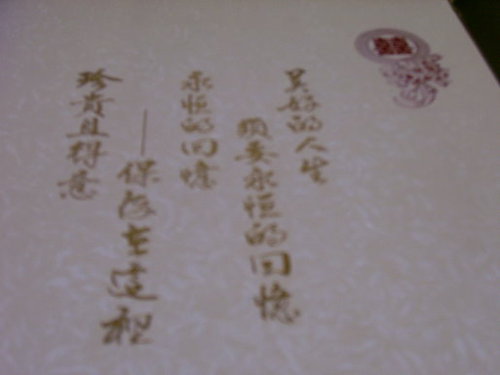 美好的人生
須要永恒的回憶
永恒的回憶
——保存在這裡
珍貴且得意